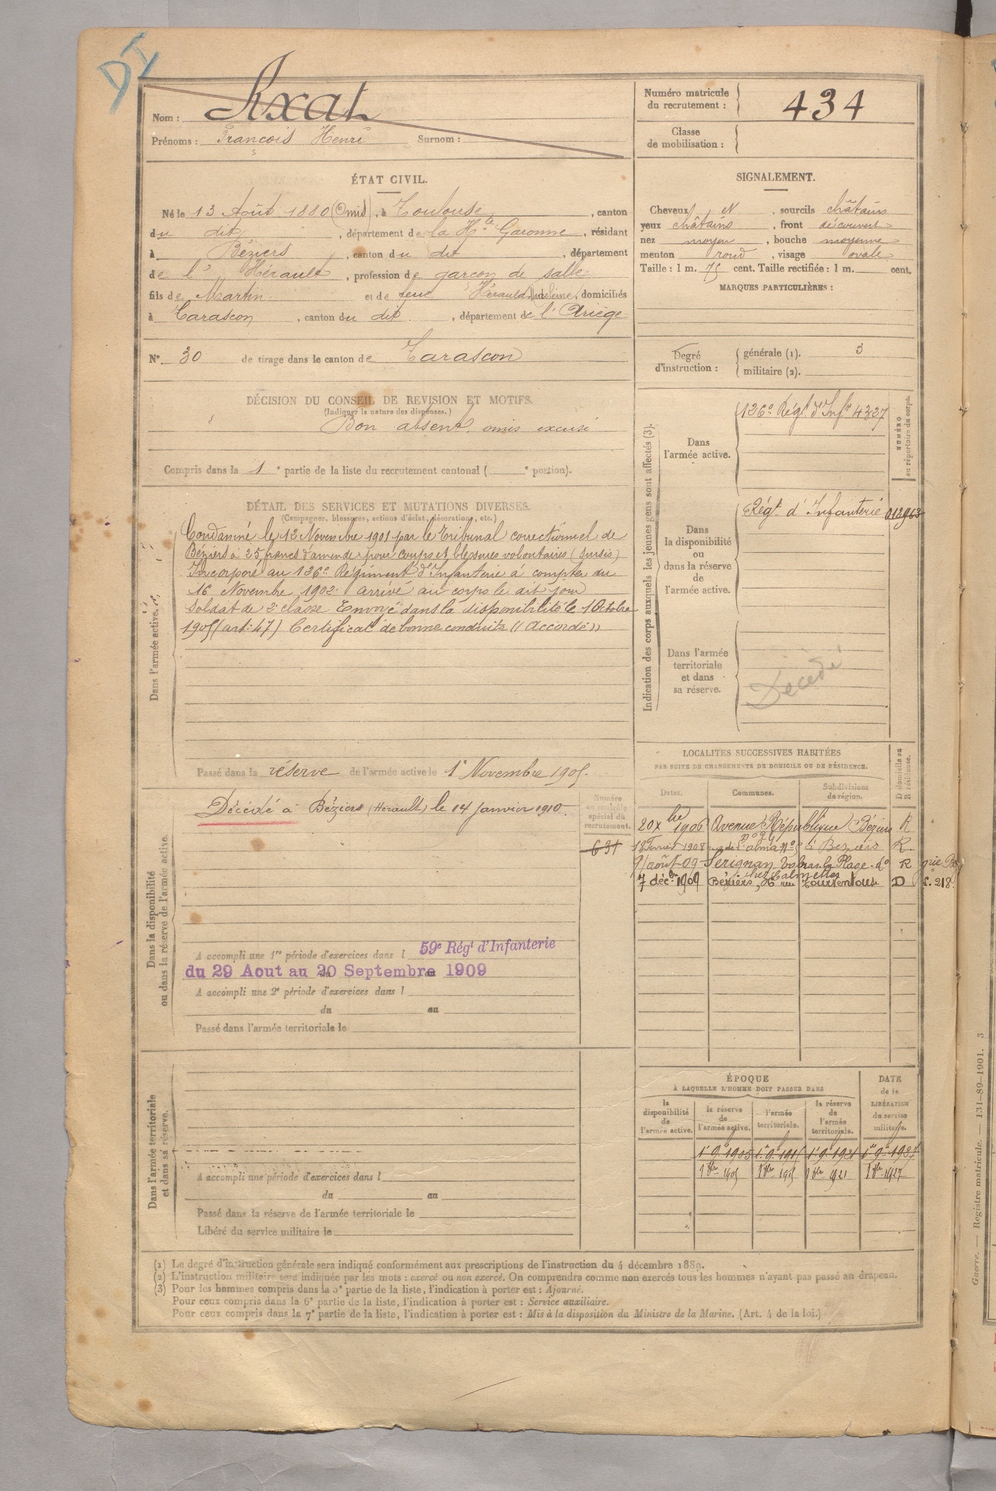 DI
Nom : Axat
Prénoms : François Henri Surnom :
Numéro matricule du recrutement : 434
Classe de mobilisation :
ÉTAT CIVIL.
Né le 13 Août 1880 (Omis), à Toulouse, canton
du dit, département de la Hte Garonne, résidant
à Béziers, canton du dit, département
de l' Hérault, profession de garçon de salle
fils de Martin et de feue Hérault Madeleine, domiciliés
à Tarascon, canton du dit, département de l'Ariège
SIGNALEMENT.
Cheveux N, sourcils châtains
yeux châtains, front découvert
nez moyen, bouche moyenne
menton rond, visage ovale
Taille : 1 m. 75 cent. Taille rectifiée : 1 m. cent.
MARQUES PARTICULIÈRES :
N° 30 de tirage dans le canton de Tarascon
Degré d'instruction : générale (1). 3
militaire (2).
DÉCISION DU CONSEIL DE REVISION ET MOTIFS.
(Indiquer la nature des dispenses.)
Bon absent, omis excusé
Compris dans la 1e partie de la liste du recrutement cantonal ( e portion).
DÉTAIL DES SERVICES ET MUTATIONS DIVERSES.
(Campagnes, blessures, actions d'éclat, décorations, etc.)
Dans l'armée active.
Condamné le 12 Novembre 1901 par le Tribunal correctionnel de
Béziers à 25 francs d'amende pour coups et blessures volontaires (sursis)
Incorporé au 136e Régiment d'Infanterie à compter du
16 Novembre 1902 arrivé au corps le dit jour
Soldat de 2e classe Envoyé dans la disponibilité le 1 Octobre
1905 (art. 47) Certificat de bonne conduite "Accordé"
Passé dans la réserve de l'armée active le 1er Novembre 1905.
Indication des corps auxquels les jeunes gens sont affectés (3).
NUMÉRO au répertoire du corps.
Dans l'armée active.
136e Régt d'Infie 4327
Dans la disponibilité ou dans la réserve de l'armée active.
Régt d'Infanterie
Dans l'armée territoriale et dans sa réserve.
Décédé
Dans la disponibilité ou dans la réserve de l'armée active.
Décédé à Béziers (Hérault) le 14 janvier 1910.
Numéro au contrôle spécial du recrutement.
631
A accompli une 1re période d'exercices dans l 59e Régt d'Infanterie
du 29 Aout au 20 Septembre 1909
A accompli une 2e période d'exercices dans l
du au
Passé dans l'armée territoriale le
LOCALITÉS SUCCESSIVES HABITÉES
PAR SUITE DE CHANGEMENTS DE DOMICILE OU DE RÉSIDENCE.
Dates. Communes. Subdivisions de région. D domicile ou R résidence.
20 Xbre 1906 Avenue République Béziers R
18 Février 1908 rue de l'alma N° Béziers R.
9 août 09 Serignan Valras la Plage R
7 déc. 1909 Béziers, rue Tourventouse D
Dans l'armée territoriale et dans sa réserve.
A accompli une période d'exercices dans l
du au
Passé dans la réserve de l'armée territoriale le
Libéré du service militaire le
ÉPOQUE
À LAQUELLE L'HOMME DOIT PASSER DANS
la disponibilité de l'armée active. la réserve de l'armée active. l'armée territoriale. la réserve de l'armée territoriale.
DATE de la LIBÉRATION du service militaire.
1er 9e 1905 1er 9e 1915 1er 9e 1921 1er 9e 1927
(1) Le degré d'instruction générale sera indiqué conformément aux prescriptions de l'instruction du 4 décembre 1889.
(2) L'instruction militaire sera indiquée par les mots : exercé ou non exercé. On comprendra comme non exercés tous les hommes n'ayant pas passé au drapeau.
(3) Pour les hommes compris dans la 5e partie de la liste, l'indication à porter est : Ajourné.
Pour ceux compris dans la 6e partie de la liste, l'indication à porter est : Service auxiliaire.
Pour ceux compris dans la 7e partie de la liste, l'indication à porter est : Mis à la disposition du Ministre de la Marine. (Art. 4 de la loi.)
Guerre. — Registre matricule. — 131-89-1901. 3